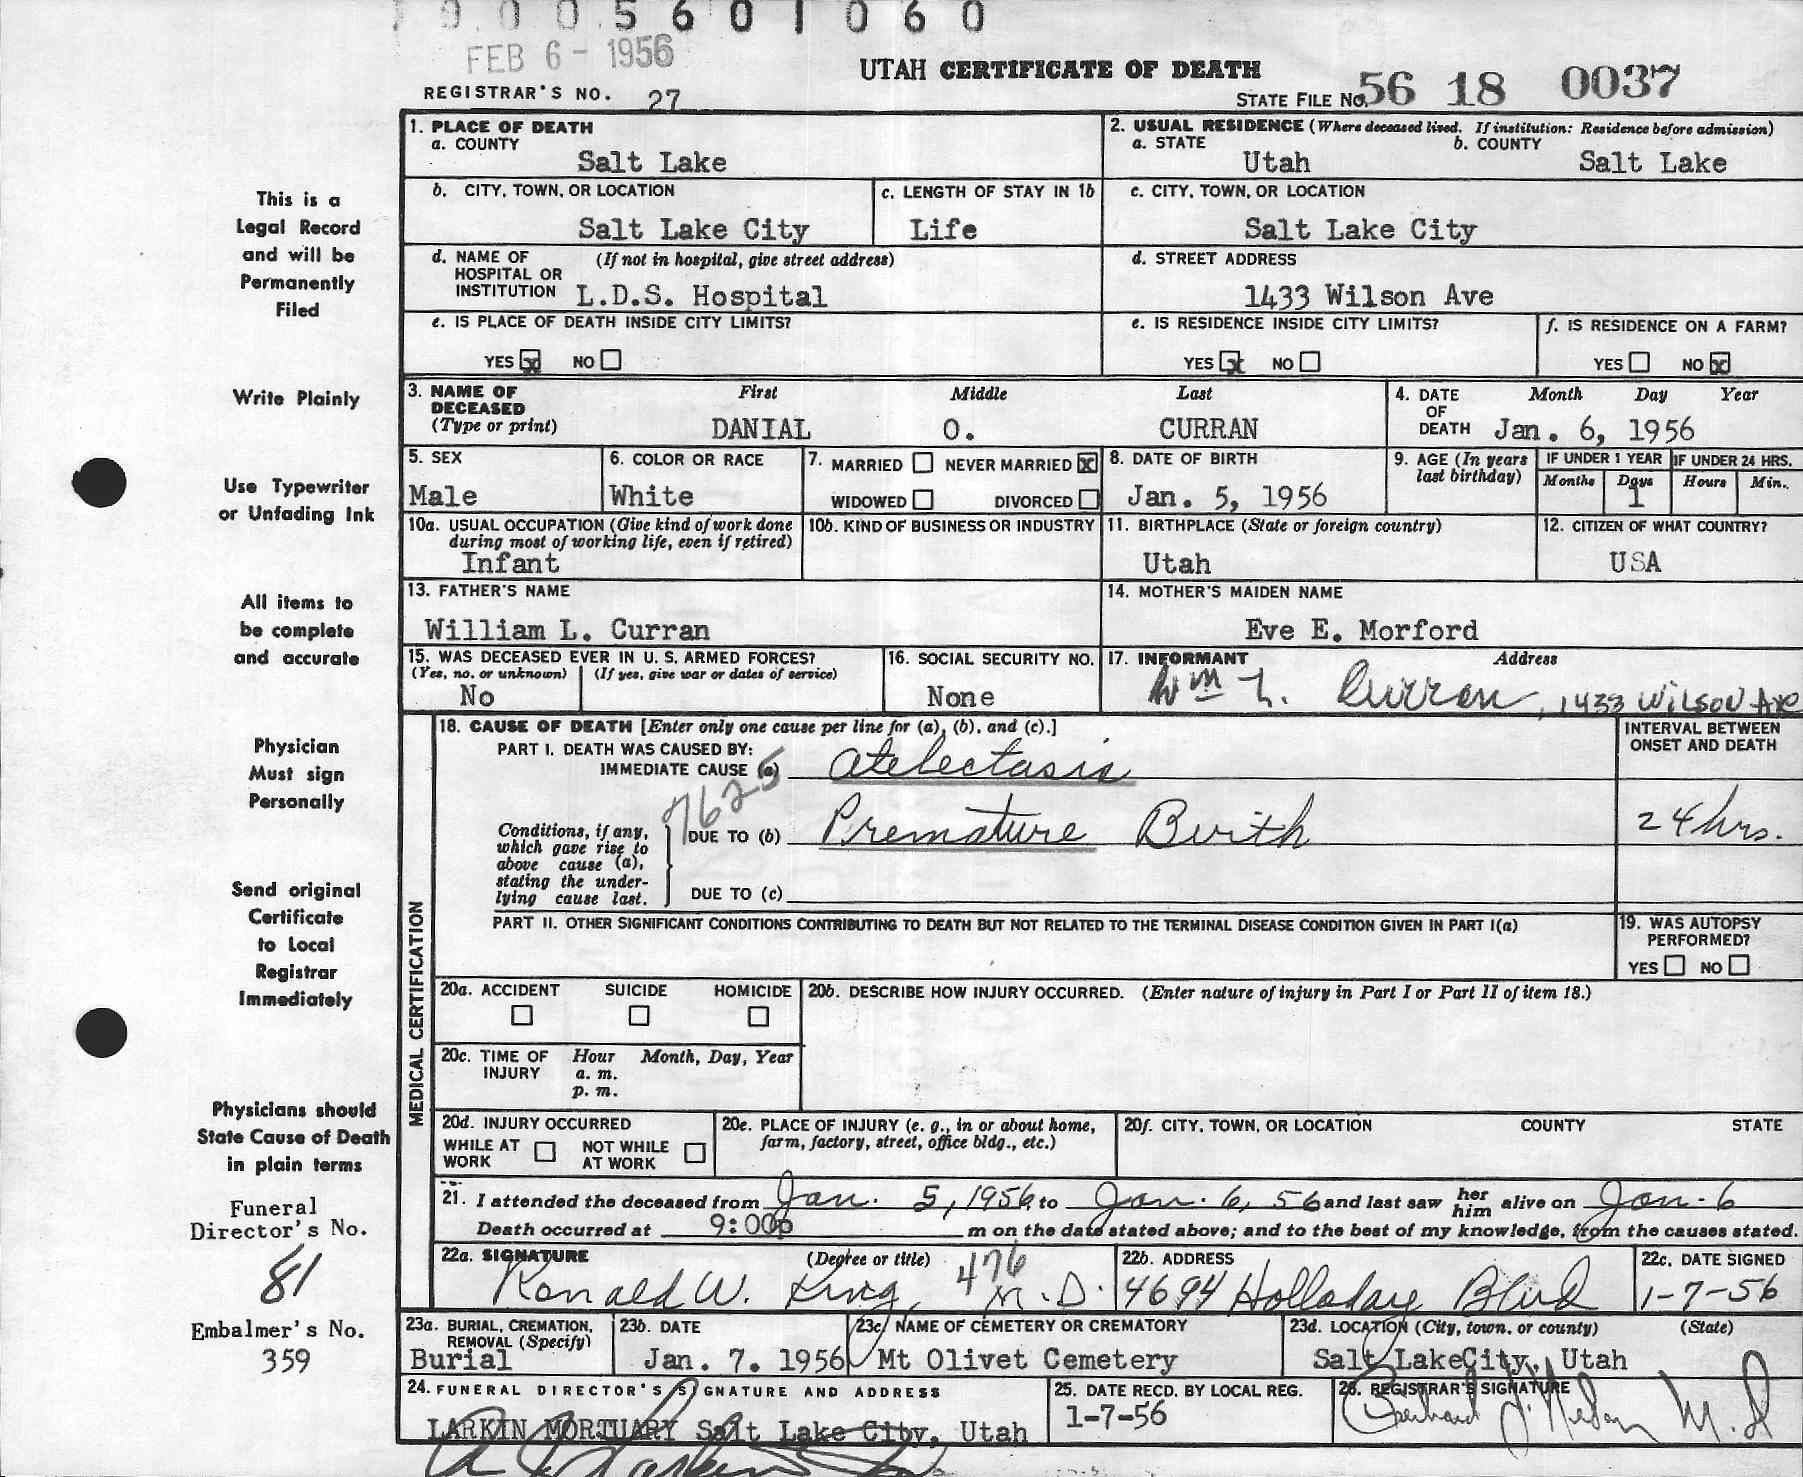 9 0 0 5 6 0 1 0 6 0
FEB 6 - 1956
UTAH CERTIFICATE OF DEATH
REGISTRAR'S NO. 27
STATE FILE NO. 56 18 0037
1. PLACE OF DEATH
a. COUNTY
Salt Lake
2. USUAL RESIDENCE (Where deceased lived. If institution: Residence before admission)
a. STATE b. COUNTY
Utah Salt Lake
b. CITY, TOWN, OR LOCATION
Salt Lake City
c. LENGTH OF STAY IN 1b
Life
c. CITY, TOWN, OR LOCATION
Salt Lake City
d. NAME OF (If not in hospital, give street address)
HOSPITAL OR
INSTITUTION L.D.S. Hospital
d. STREET ADDRESS
1433 Wilson Ave
e. IS PLACE OF DEATH INSIDE CITY LIMITS?
YES x NO
e. IS RESIDENCE INSIDE CITY LIMITS?
YES x NO
f. IS RESIDENCE ON A FARM?
YES NO x
3. NAME OF DECEASED (Type or print)
First Middle Last
DANIAL O. CURRAN
4. DATE OF DEATH
Month Day Year
Jan. 6, 1956
5. SEX
Male
6. COLOR OR RACE
White
7. MARRIED NEVER MARRIED x
WIDOWED DIVORCED
8. DATE OF BIRTH
Jan. 5, 1956
9. AGE (In years
last birthday)
IF UNDER 1 YEAR
Months Days
1
IF UNDER 24 HRS.
Hours Min.
10a. USUAL OCCUPATION (Give kind of work done
during most of working life, even if retired)
Infant
10b. KIND OF BUSINESS OR INDUSTRY
11. BIRTHPLACE (State or foreign country)
Utah
12. CITIZEN OF WHAT COUNTRY?
USA
13. FATHER'S NAME
William L. Curran
14. MOTHER'S MAIDEN NAME
Eve E. Morford
15. WAS DECEASED EVER IN U. S. ARMED FORCES?
(Yes, no, or unknown) (If yes, give war or dates of service)
No
16. SOCIAL SECURITY NO.
None
17. INFORMANT Address
Wm L. Curran, 1433 Wilson Ave
MEDICAL CERTIFICATION
18. CAUSE OF DEATH [Enter only one cause per line for (a), (b), and (c).]
PART I. DEATH WAS CAUSED BY:
IMMEDIATE CAUSE (a) Atelectasis
7625
Conditions, if any,
which gave rise to
above cause (a),
stating the under-
lying cause last.
DUE TO (b) Premature Birth
DUE TO (c)
INTERVAL BETWEEN
ONSET AND DEATH
24 hrs.
PART II. OTHER SIGNIFICANT CONDITIONS CONTRIBUTING TO DEATH BUT NOT RELATED TO THE TERMINAL DISEASE CONDITION GIVEN IN PART I(a)
19. WAS AUTOPSY
PERFORMED?
YES NO
20a. ACCIDENT SUICIDE HOMICIDE
20b. DESCRIBE HOW INJURY OCCURRED. (Enter nature of injury in Part I or Part II of item 18.)
20c. TIME OF INJURY
Hour Month, Day, Year
a. m.
p. m.
20d. INJURY OCCURRED
WHILE AT WORK NOT WHILE AT WORK
20e. PLACE OF INJURY (e. g., in or about home,
farm, factory, street, office bldg., etc.)
20f. CITY, TOWN, OR LOCATION COUNTY STATE
21. I attended the deceased from Jan. 5, 1956, to Jan. 6, 56 and last saw her him alive on Jan. 6
Death occurred at 9:00p m on the date stated above; and to the best of my knowledge, from the causes stated.
22a. SIGNATURE (Degree or title)
Ronald W. King, M.D.
476
22b. ADDRESS
4694 Holladay Blvd
22c. DATE SIGNED
1-7-56
23a. BURIAL, CREMATION,
REMOVAL (Specify)
Burial
23b. DATE
Jan. 7. 1956
23c. NAME OF CEMETERY OR CREMATORY
Mt Olivet Cemetery
23d. LOCATION (City, town, or county) (State)
Salt LakeCity, Utah
24. FUNERAL DIRECTOR'S SIGNATURE AND ADDRESS
LARKIN MORTUARY Salt Lake City, Utah
25. DATE RECD. BY LOCAL REG.
1-7-56
26. REGISTRAR'S SIGNATURE
M.D
This is a
Legal Record
and will be
Permanently
Filed
Write Plainly
Use Typewriter
or Unfading Ink
All items to
be complete
and accurate
Physician
Must sign
Personally
Send original
Certificate
to Local
Registrar
Immediately
Physicians should
State Cause of Death
in plain terms
Funeral
Director's No.
81
Embalmer's No.
359